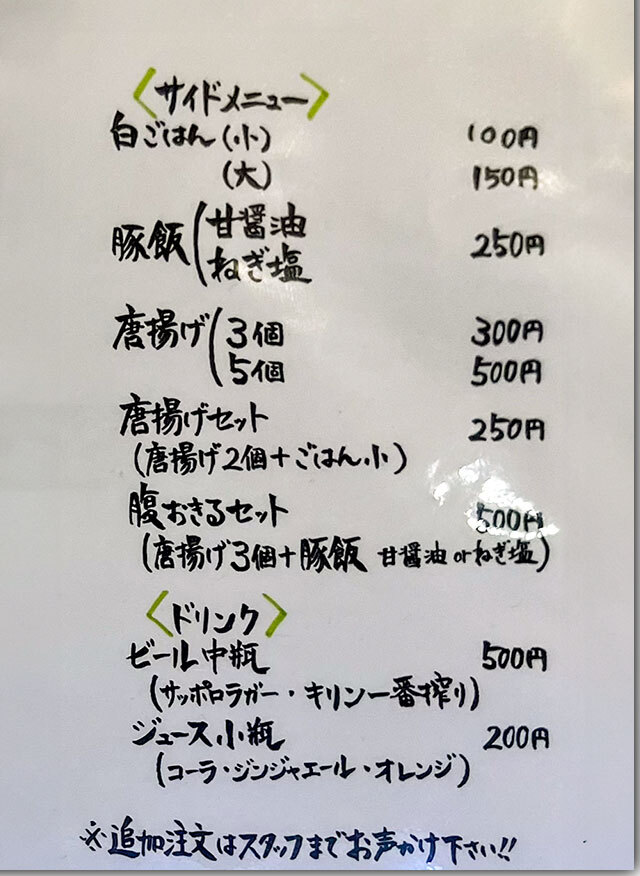 〈サイドメニュー〉
白ごはん(小) 100円
(大) 150円
豚飯(甘醤油 250円
ねぎ塩
唐揚げ(3個 300円
5個 500円
唐揚げセット 250円
(唐揚げ2個+ごはん小)
腹おきるセット 500円
(唐揚げ3個+豚飯 甘醤油orねぎ塩)
〈ドリンク〉
ビール中瓶 500円
(サッポロラガー・キリン一番搾り)
ジュース小瓶 200円
(コーラ・ジンジャエール・オレンジ)
※追加注文はスタッフまでお声かけ下さい!!